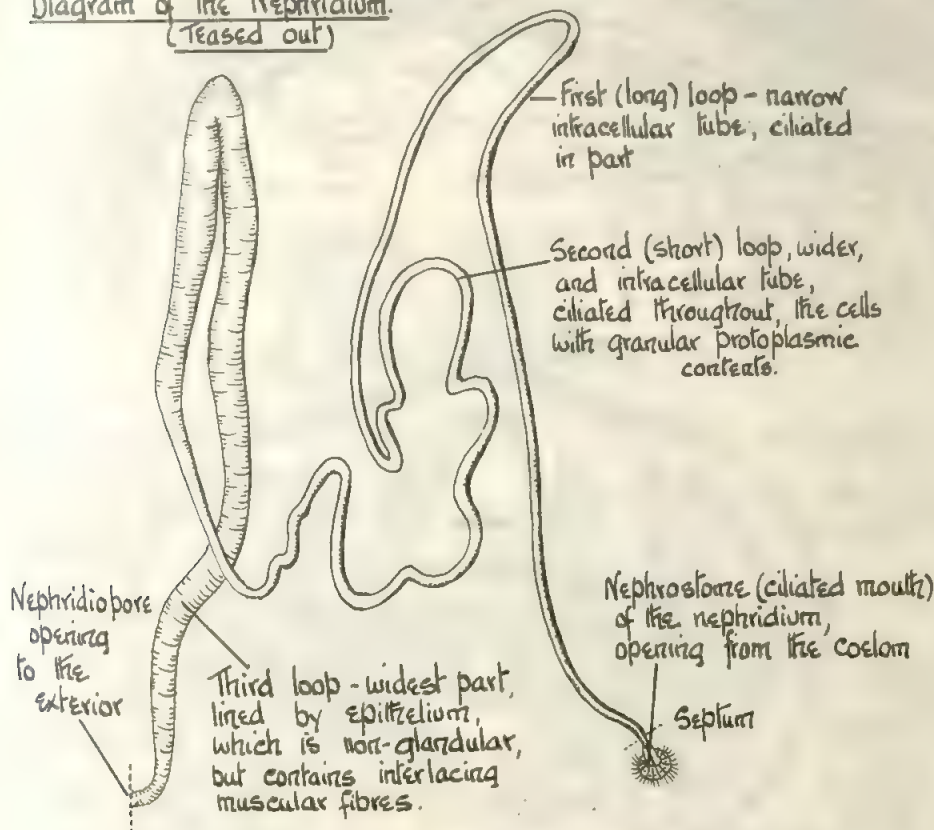 Diagram of the Nephridium.
(Teased out)
First (long) loop - narrow
intracellular tube, ciliated
in part
Second (short) loop, wider,
and intracellular tube,
ciliated throughout, the cells
with granular protoplasmic
contents.
Nephridiopore
opening
to the
exterior
Third loop - widest part,
lined by epithelium,
which is non-glandular,
but contains interlacing
muscular fibres.
Nephrostome (ciliated mouth)
of the nephridium,
opening from the coelom
Septum